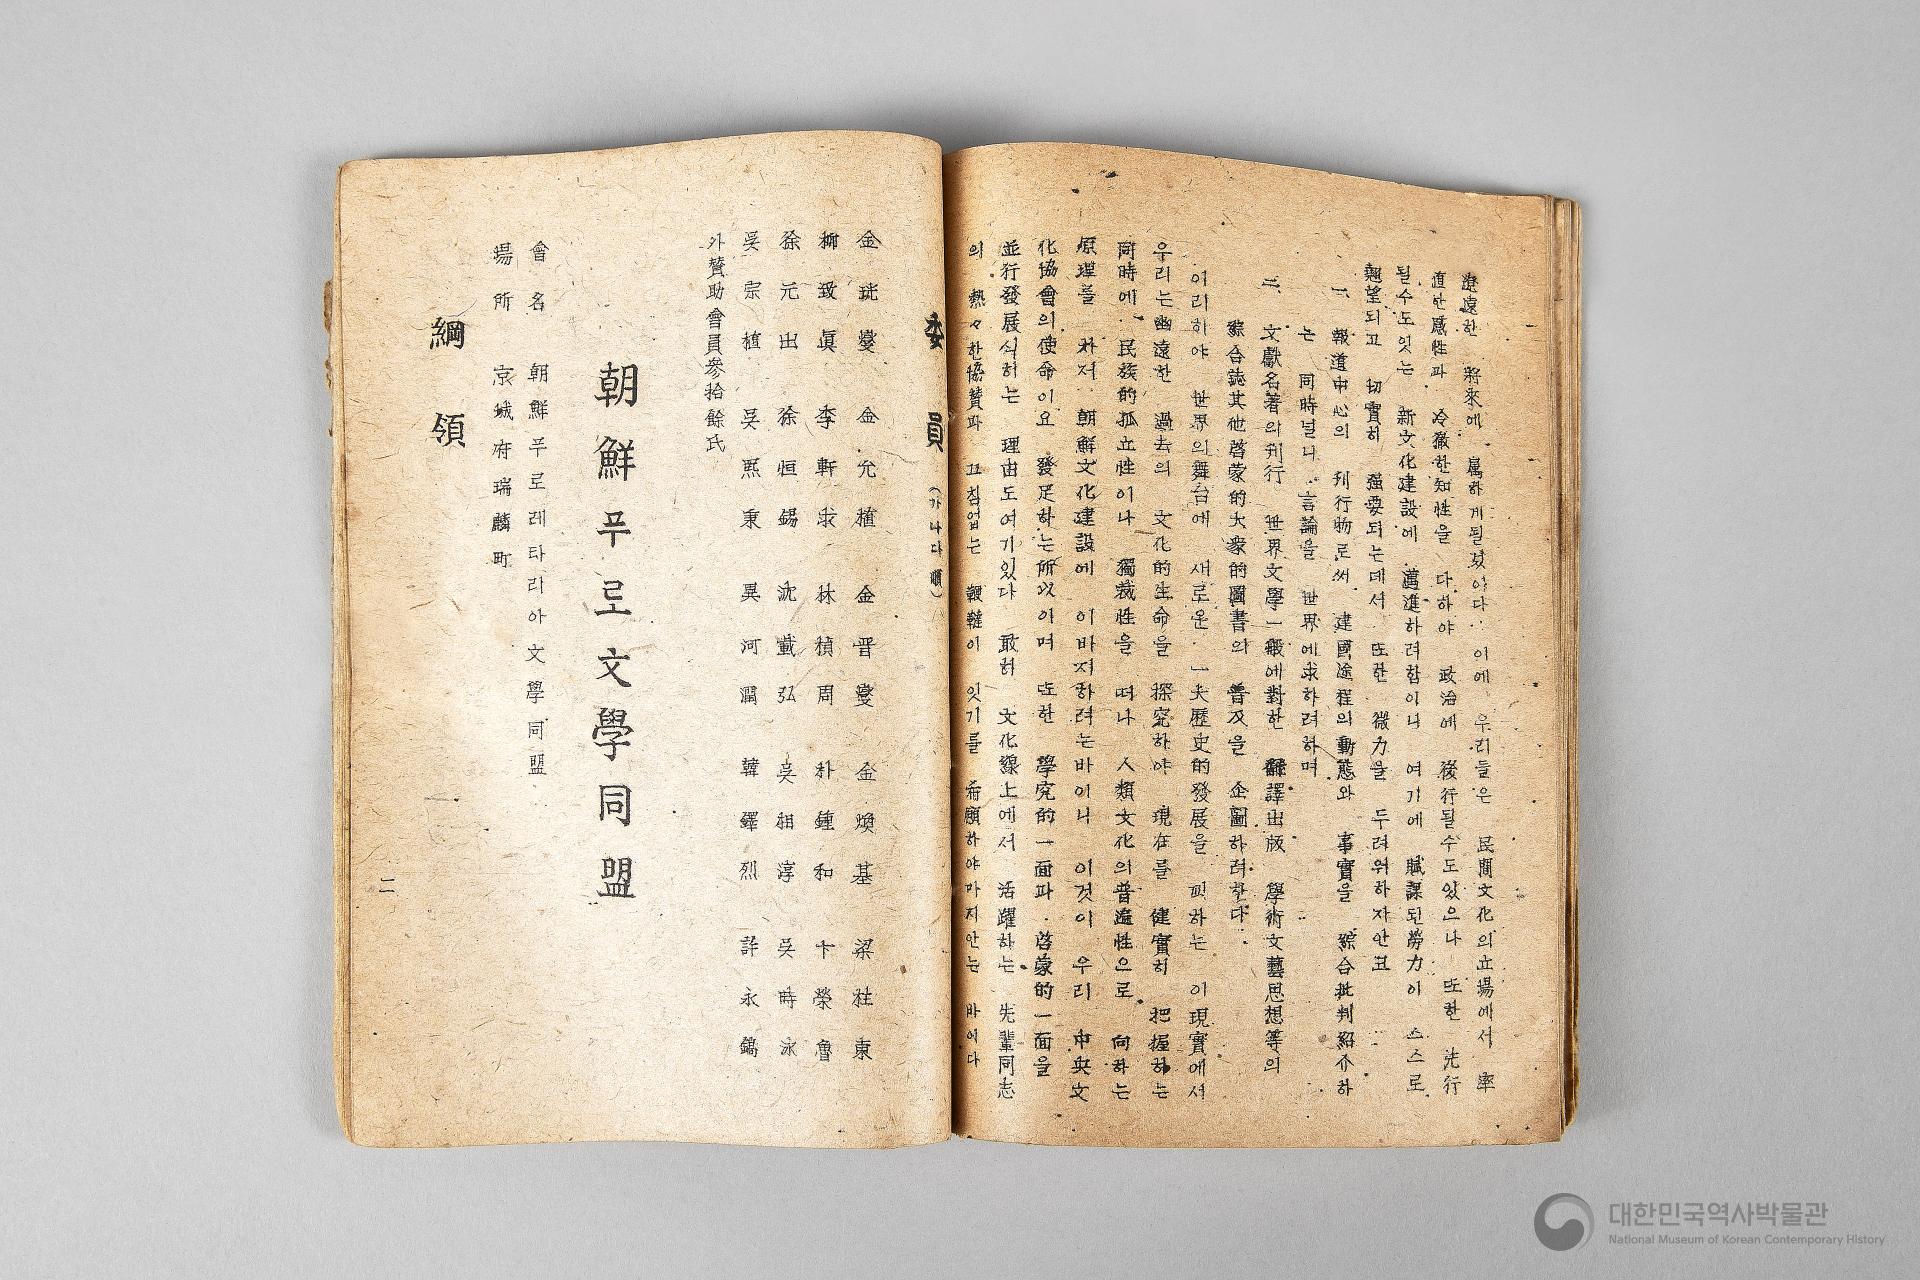 遼遠한 將來에 屬하게될것이다. 이에 우리들은 民間文化의立場에서 率
直한感性과 冷徹한知性을 다하야 政治에 後行될수도있으나 또한 先行
될수도잇는 新文化建設에 邁進하려함이니 여기에 賦課된勞力이 스스로
翹望되고 切實히 强要되는데서 또한 微力을 두려워하자안코
一、報道中心의 刊行物로써 建國途程의動態와 事實을 綜合批判紹介하
는 同時널니 言論을 世界에求하려하며
二、文獻名著의刊行 世界文學一般에對한 飜譯出版 學術文藝思想等의
綜合誌其他啓蒙的大衆的圖書의 普及을 企圖하려한다.
이리하야 世界의舞台에 새로운 一大歷史的發展을 하는 이現實에서
우리는幽遠한 過去의 文化的生命을 探究하야 現在를 健實히 把握하는
同時에 民族的孤立性이나 獨裁性을 떠나 人類文化의普遍性으로 向하는
原理를 차저 朝鮮文化建設에 이바지하려는바이니 이것이 우리 中央文
化協會의使命이요 發足하는所以이며 또한 學究的一面과 啓蒙的一面을
並行發展식히는 理由도여기있다 敢히 文化線上에서 活躍하는 先輩同志
의 熱々한協贊과 끄침업는 鞭韃이 잇기를 希願하야마지안는 바이다
委員 (가나다順)
金珖燮 金允植 金晋燮 金煥基 梁柱東
柳致眞 李軒求 林楨周 朴鍾和 卞榮魯
徐元出 徐恒錫 沈載弘 吳相淳 吳時泳
吳宗植 吳熙秉 異河潤 韓鐸烈 許永鎬
外贊助會員參拾餘氏
朝鮮푸로文學同盟
會名 朝鮮푸로레타리아文學同盟
場所 京城府瑞麟町
綱領
二
대한민국역사박물관
National Museum of Korean Contemporary History